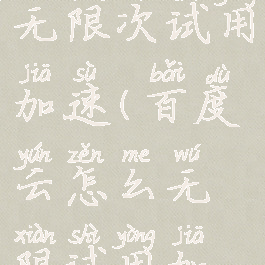 无限次试用
jiā sù bǎi dù
加速(百度
yún zěn me wú
云怎么无
xiàn shì yòng jiā
限试用加